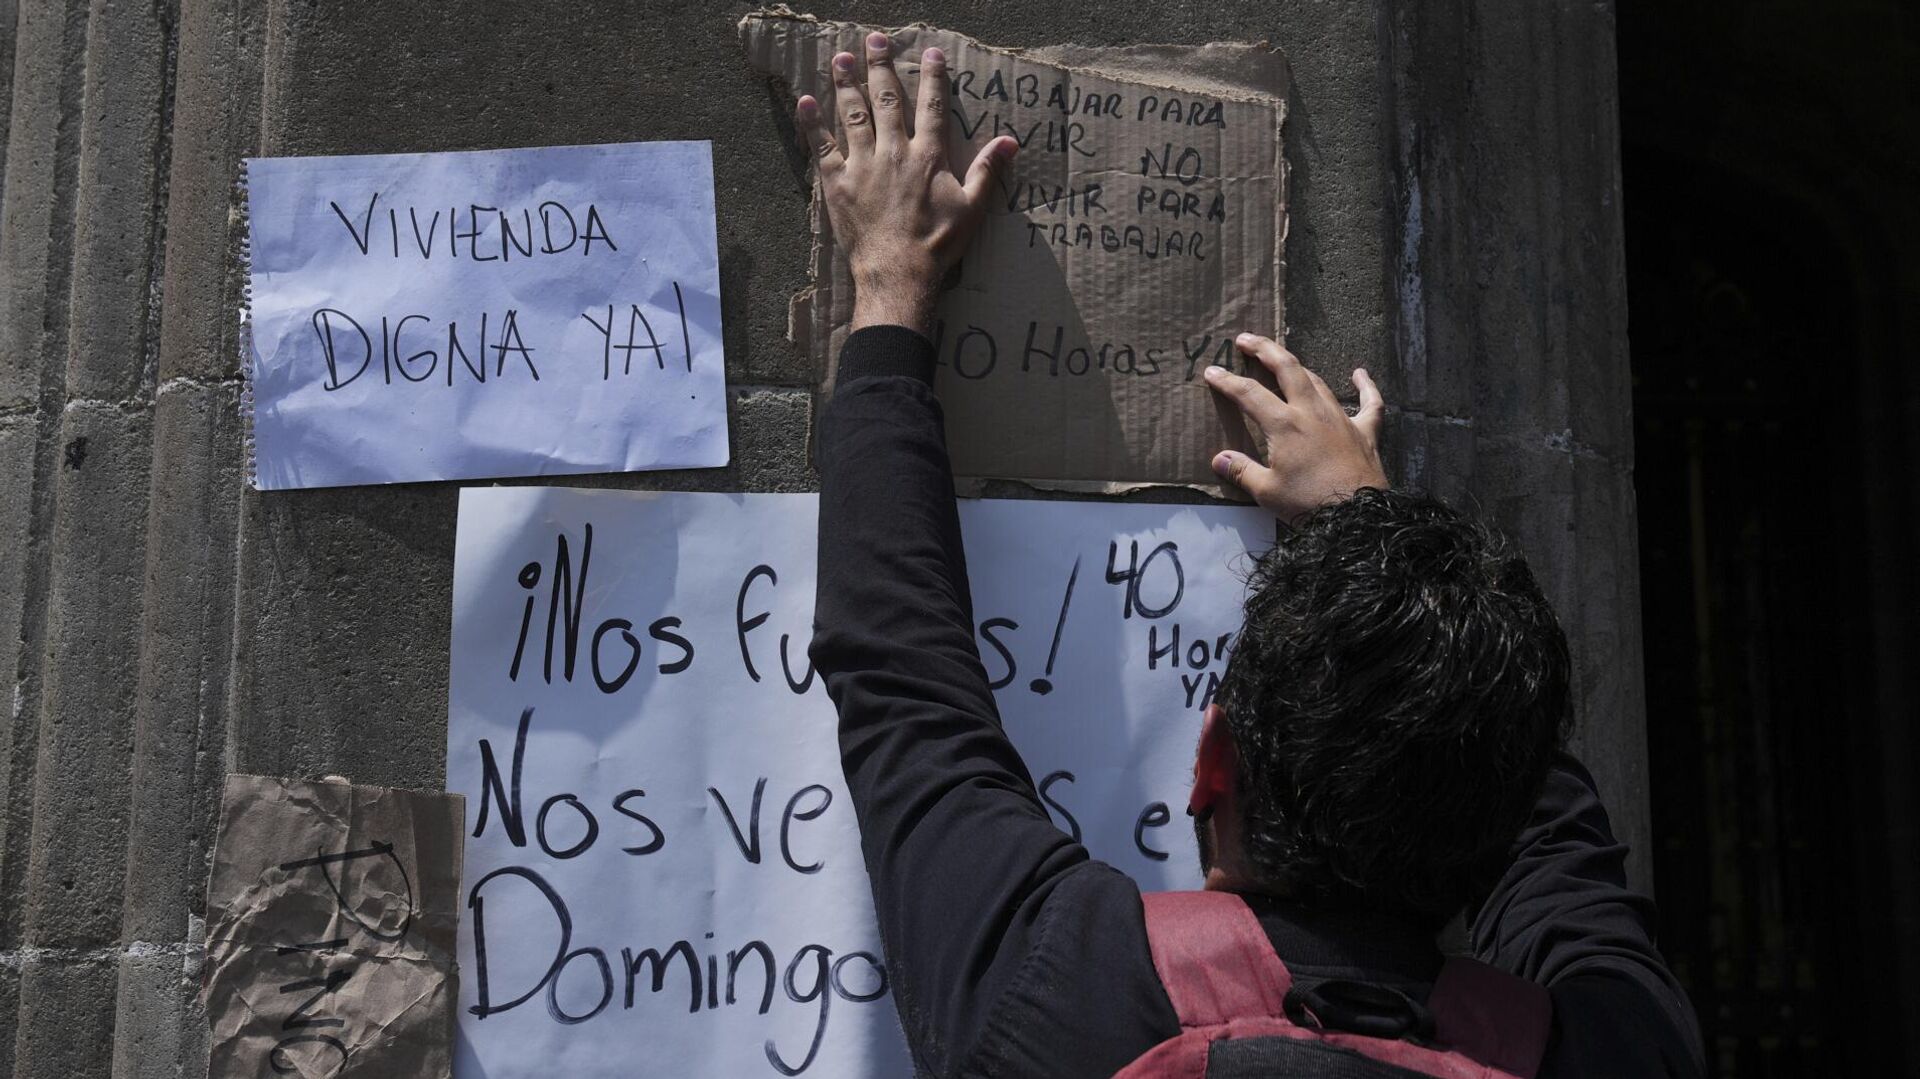 VIVIENDA
DIGNA YA!
TRABAJAR PARA
VIVIR NO
VIVIR PARA
TRABAJAR
40 Horas YA
¡Nos
40
YA
Nos
Domingo
PINO